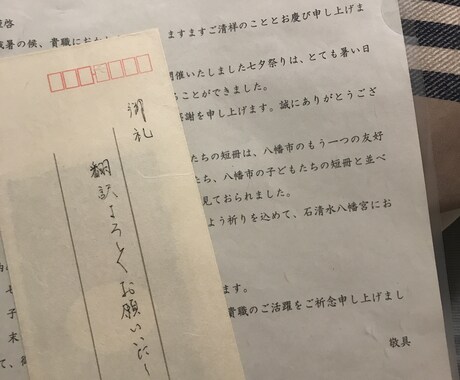 啓
暑の候、貴職におか ますますご清祥のこととお慶び申し上げま
開催いたしました七夕祭りは、とても暑い日
ることができました。
感謝を申し上げます。誠にありがとうござ
たちの短冊は、八幡市のもう一つの友好
たち、八幡市の子どもたちの短冊と並べ
見ておられました。
よう祈りを込めて、石清水八幡宮にお
ます。
貴職のご活躍をご祈念申し上げまし
敬具
子
末
て、
御礼
翻訳よろしくお願いいたし